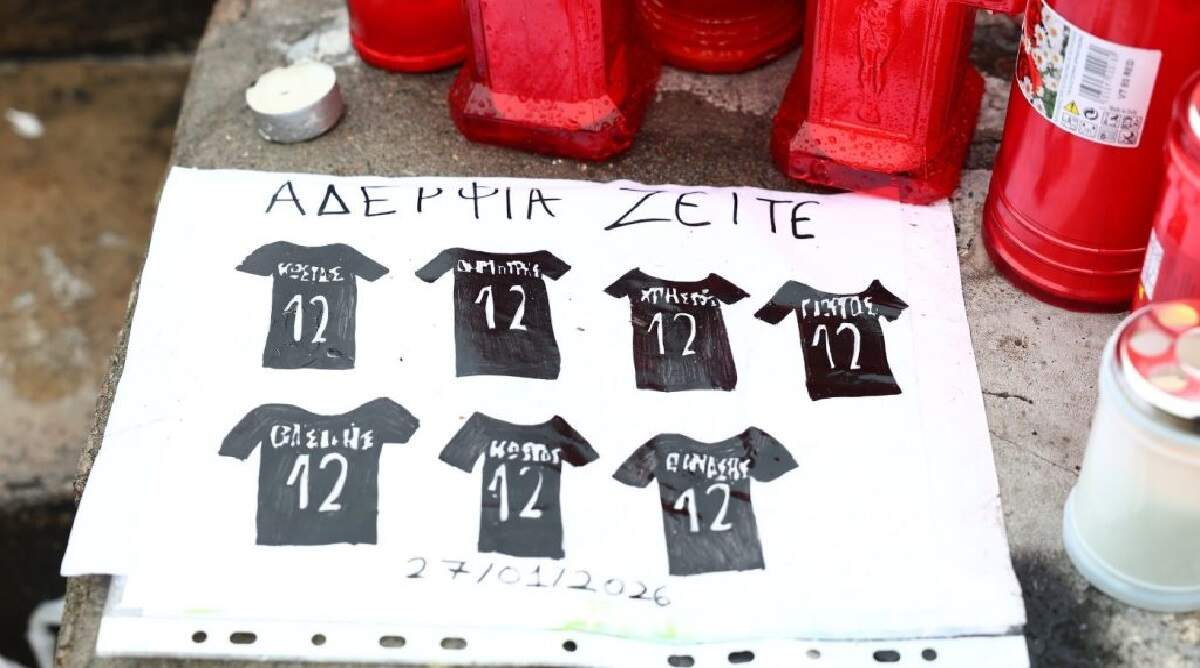 ΑΔΕΡΦΙΑ ΖΕΙΤΕ
ΚΩΣΤΑΣ
12
ΔΗΜΗΤΡΗΣ
12
12
ΓΙΩΡΓΟΣ
12
ΒΑΣΙΛΗΣ
12
12
12
27/01/2026